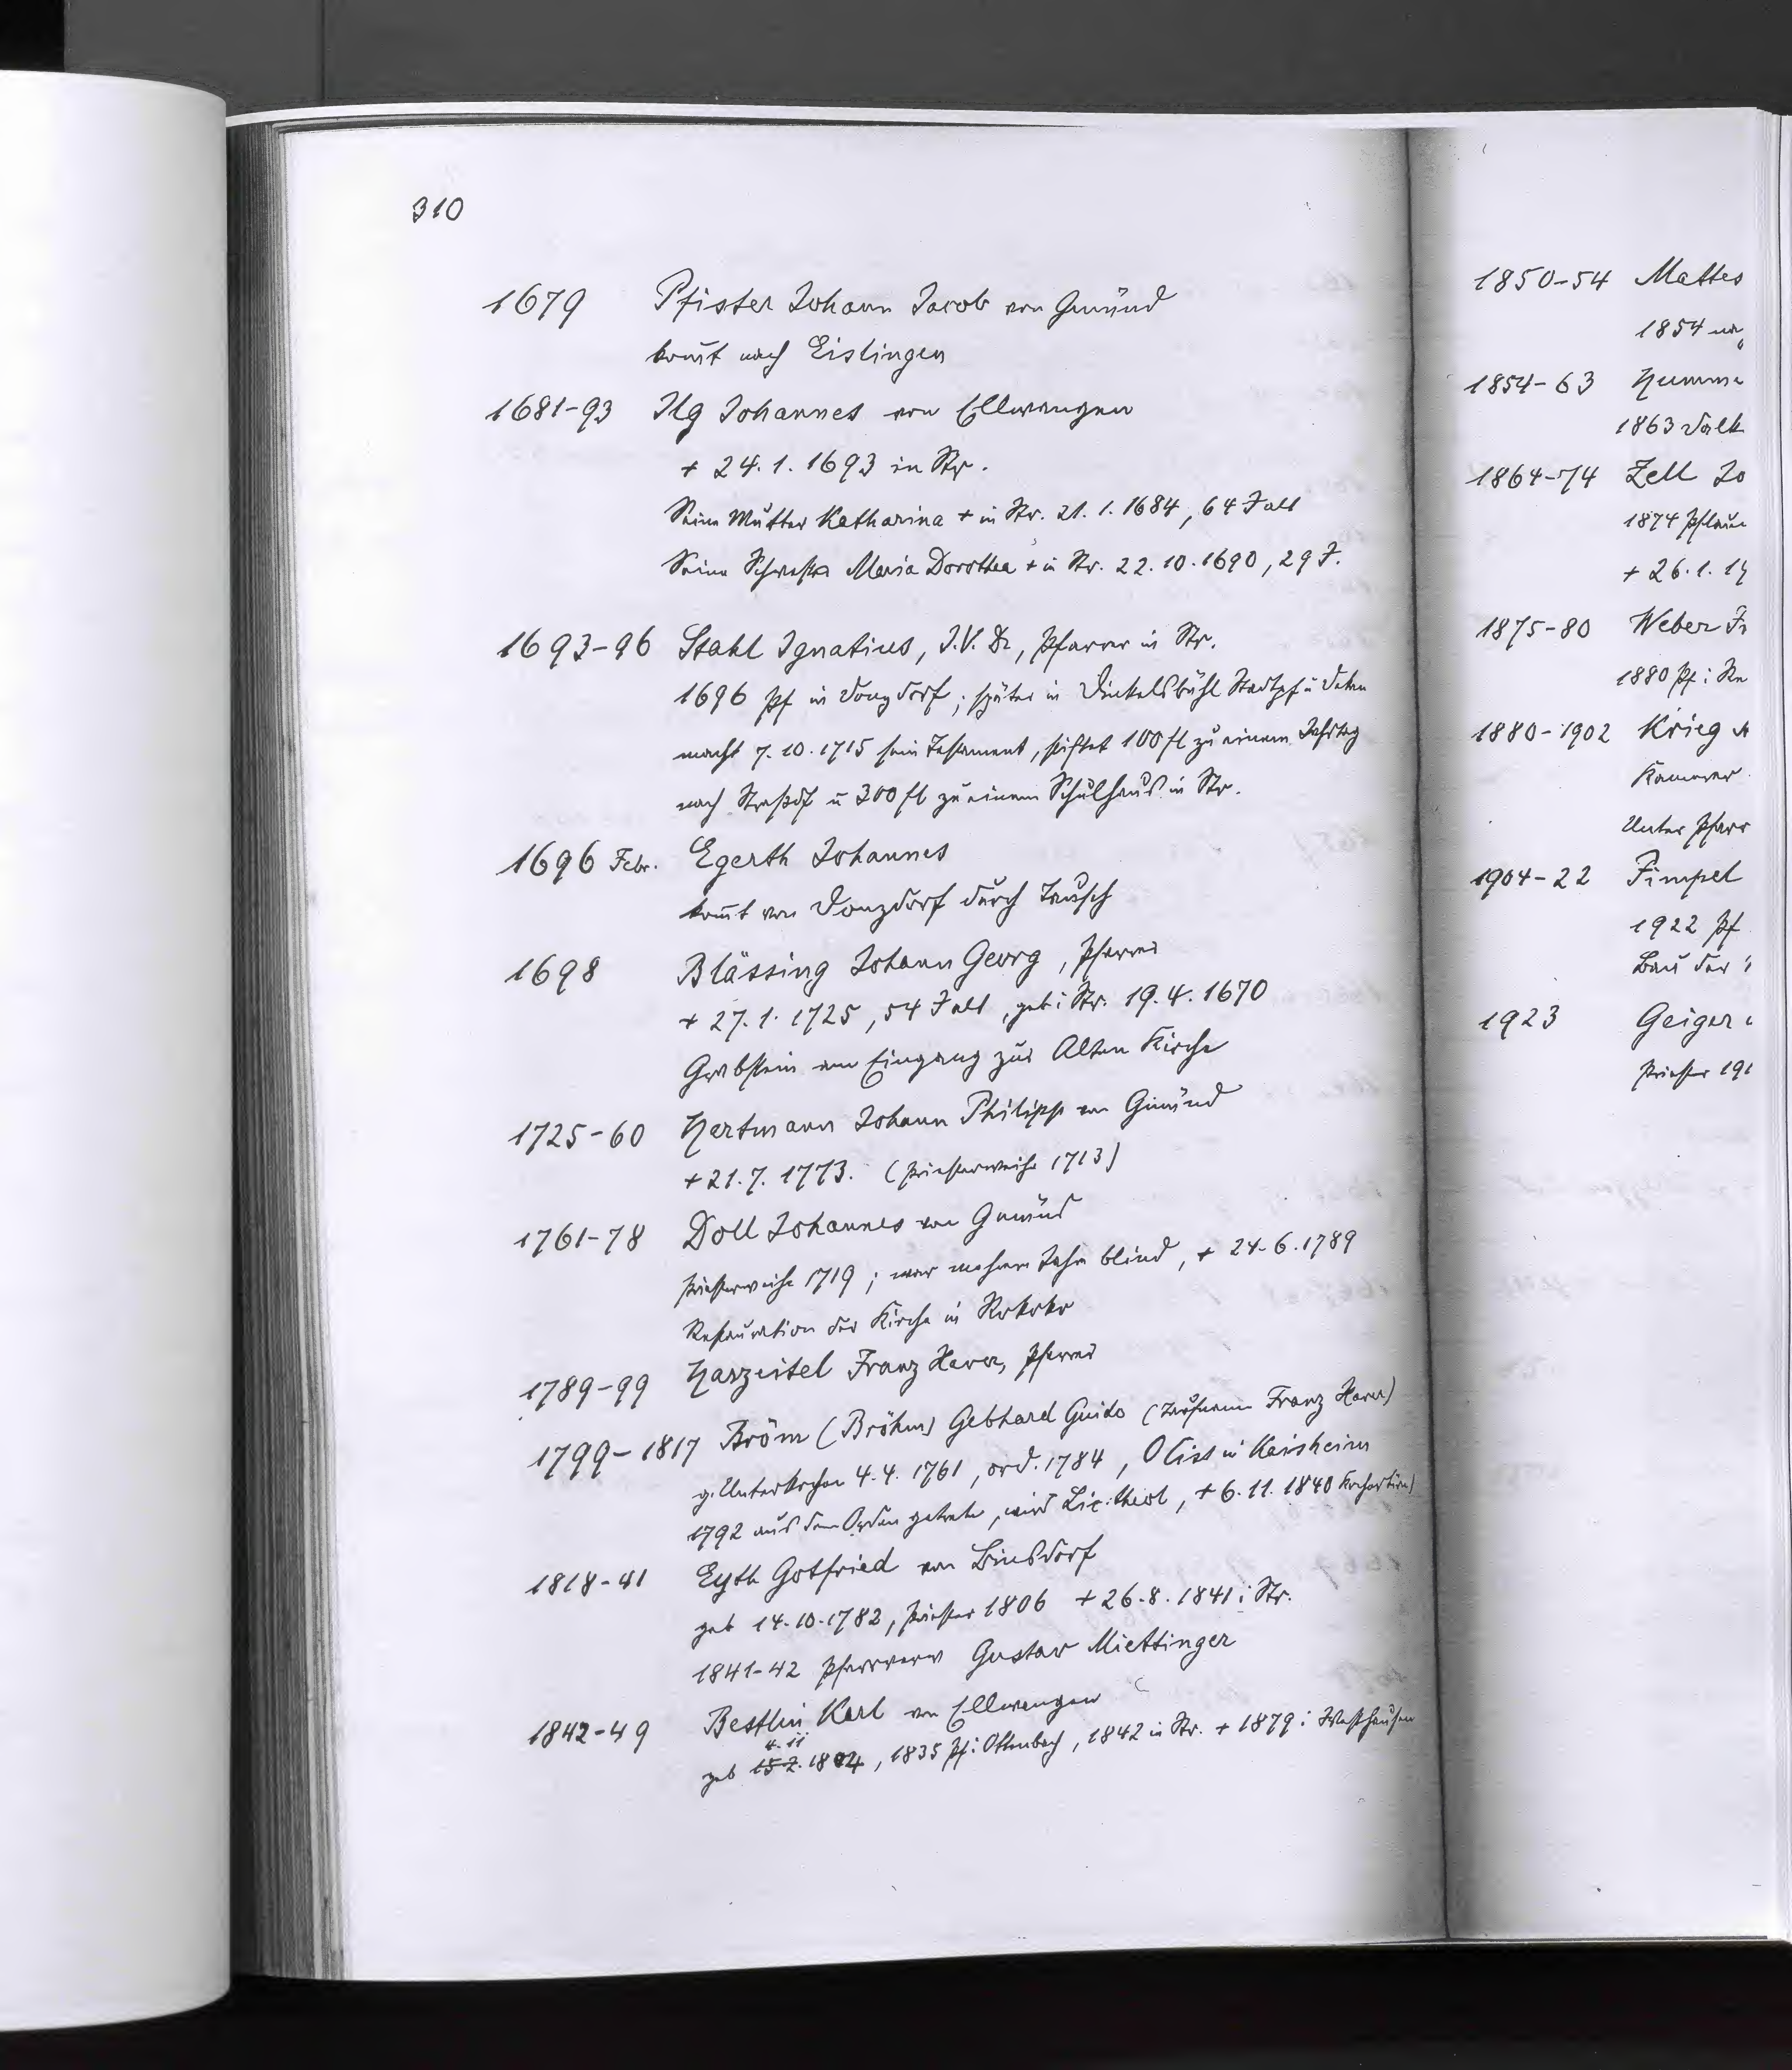 310
1679 Pfister Johann Jacob von Gmünd
kom̄t nach Eislingen
1681-93 Ilg Johannes von Ellwangen
+ 24.1.1693 in Str.
Seine Mutter Katharina + in Str. 21.1.1684, 64 J alt
Seine Schwester Maria Dorothea + in Str. 22.10.1690, 29 J.
1693-96 Stahl Ignatius, J.V.Dr, Pfarrer in Str.
1696 Pf in Donzdorf; später in Dinkelsbühl Stadtpf u Dekan
macht 7.10.1715 sein Testament, stiftet 100 fl zu einem Jahrtag
nach Straßdf u 300 fl zu einem Schulhaus in Str.
1696 Febr. Egerth Johannes
kom̄t von Donzdorf durch Tausch
1698 Blässing Johann Georg, Pfarrer
+ 27.1.1725, 54 J alt, geb i Str. 19.4.1670
Grabstein am Eingang zur Alten Kirche
1725-60 Hartmann Johann Philipp von Gmünd
+ 21.7.1773. (Priesterweihe 1713)
1761-78 Doll Johannes von Gmünd
Priesterweihe 1719; war mehrere Jahre blind, + 24.6.1789
Restauration der Kirche in Rokoko
1789-99 Harzeitel Franz Xaver, Pfarrer
1799-1817 Bröm (Bröhm) Gebhard Guido (Taufname Franz Xaver)
g. Unterkochen 4.4.1761, ord. 1784, O Cist in Kaisheim
1792 aus dem Orden getreten, wird Lic. theol, + 6.11.1840
1818-41 Eyth Gotfried von Binsdorf
geb 14.10.1782, Priester 1806 + 26.8.1841 i Str.
1841-42 Pfarrverw Gustav Miettinger
1842-49 Bestlin Karl von Ellwangen
4.11
geb 15.2.1804, 1835 Pf i Ottenbach, 1842 in Str. + 1879 i Westhausen
1850-54 Mattes
1854
1854-63 Humme
1863
1864-74 Zell Jo
1874 Pflaum
+ 26.1.19
1875-80 Weber Fr
1880 Pf i
1880-1902 Krieg
Kamerer
Unter Pfarr
1904-22 Fimpel
1922 Pf
Bau der
1923 Geiger
Priester 191